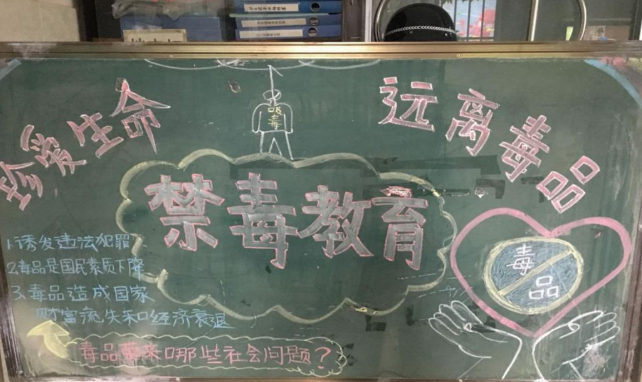 珍爱生命
远离毒品
吸毒
禁毒教育
毒品
1.诱发违法犯罪
2.毒品是国民素质下降
3.毒品造成国家
财富流失和经济衰退
毒品带来哪些社会问题？